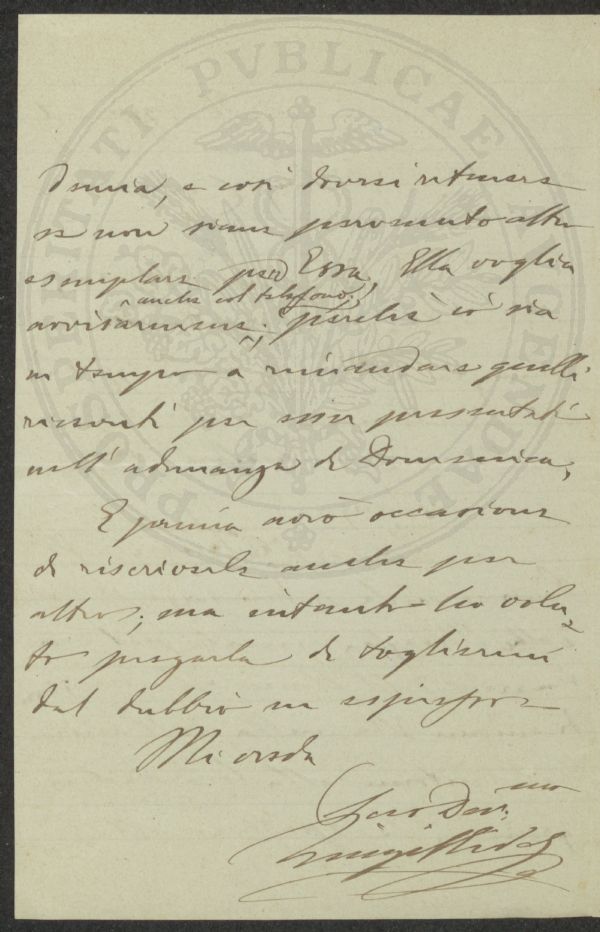 PROSPERITATI PVBLICAE AVGENDAE
e così doversi ritenere
se non siano pervenute altre
esemplare per Essa, Ella voglia
anche col telefono,
avvisarmene; perchè io sia
in tempo a rimandare quelli
per esser presentati
nell' adunanza di Domenica,
E prima avrò occasione
di riscriverle anche per
altro; ma intanto ho volu-
to pregarla di togliermi
dal dubbio
Mi creda
Suo Dev.mo
Luigi